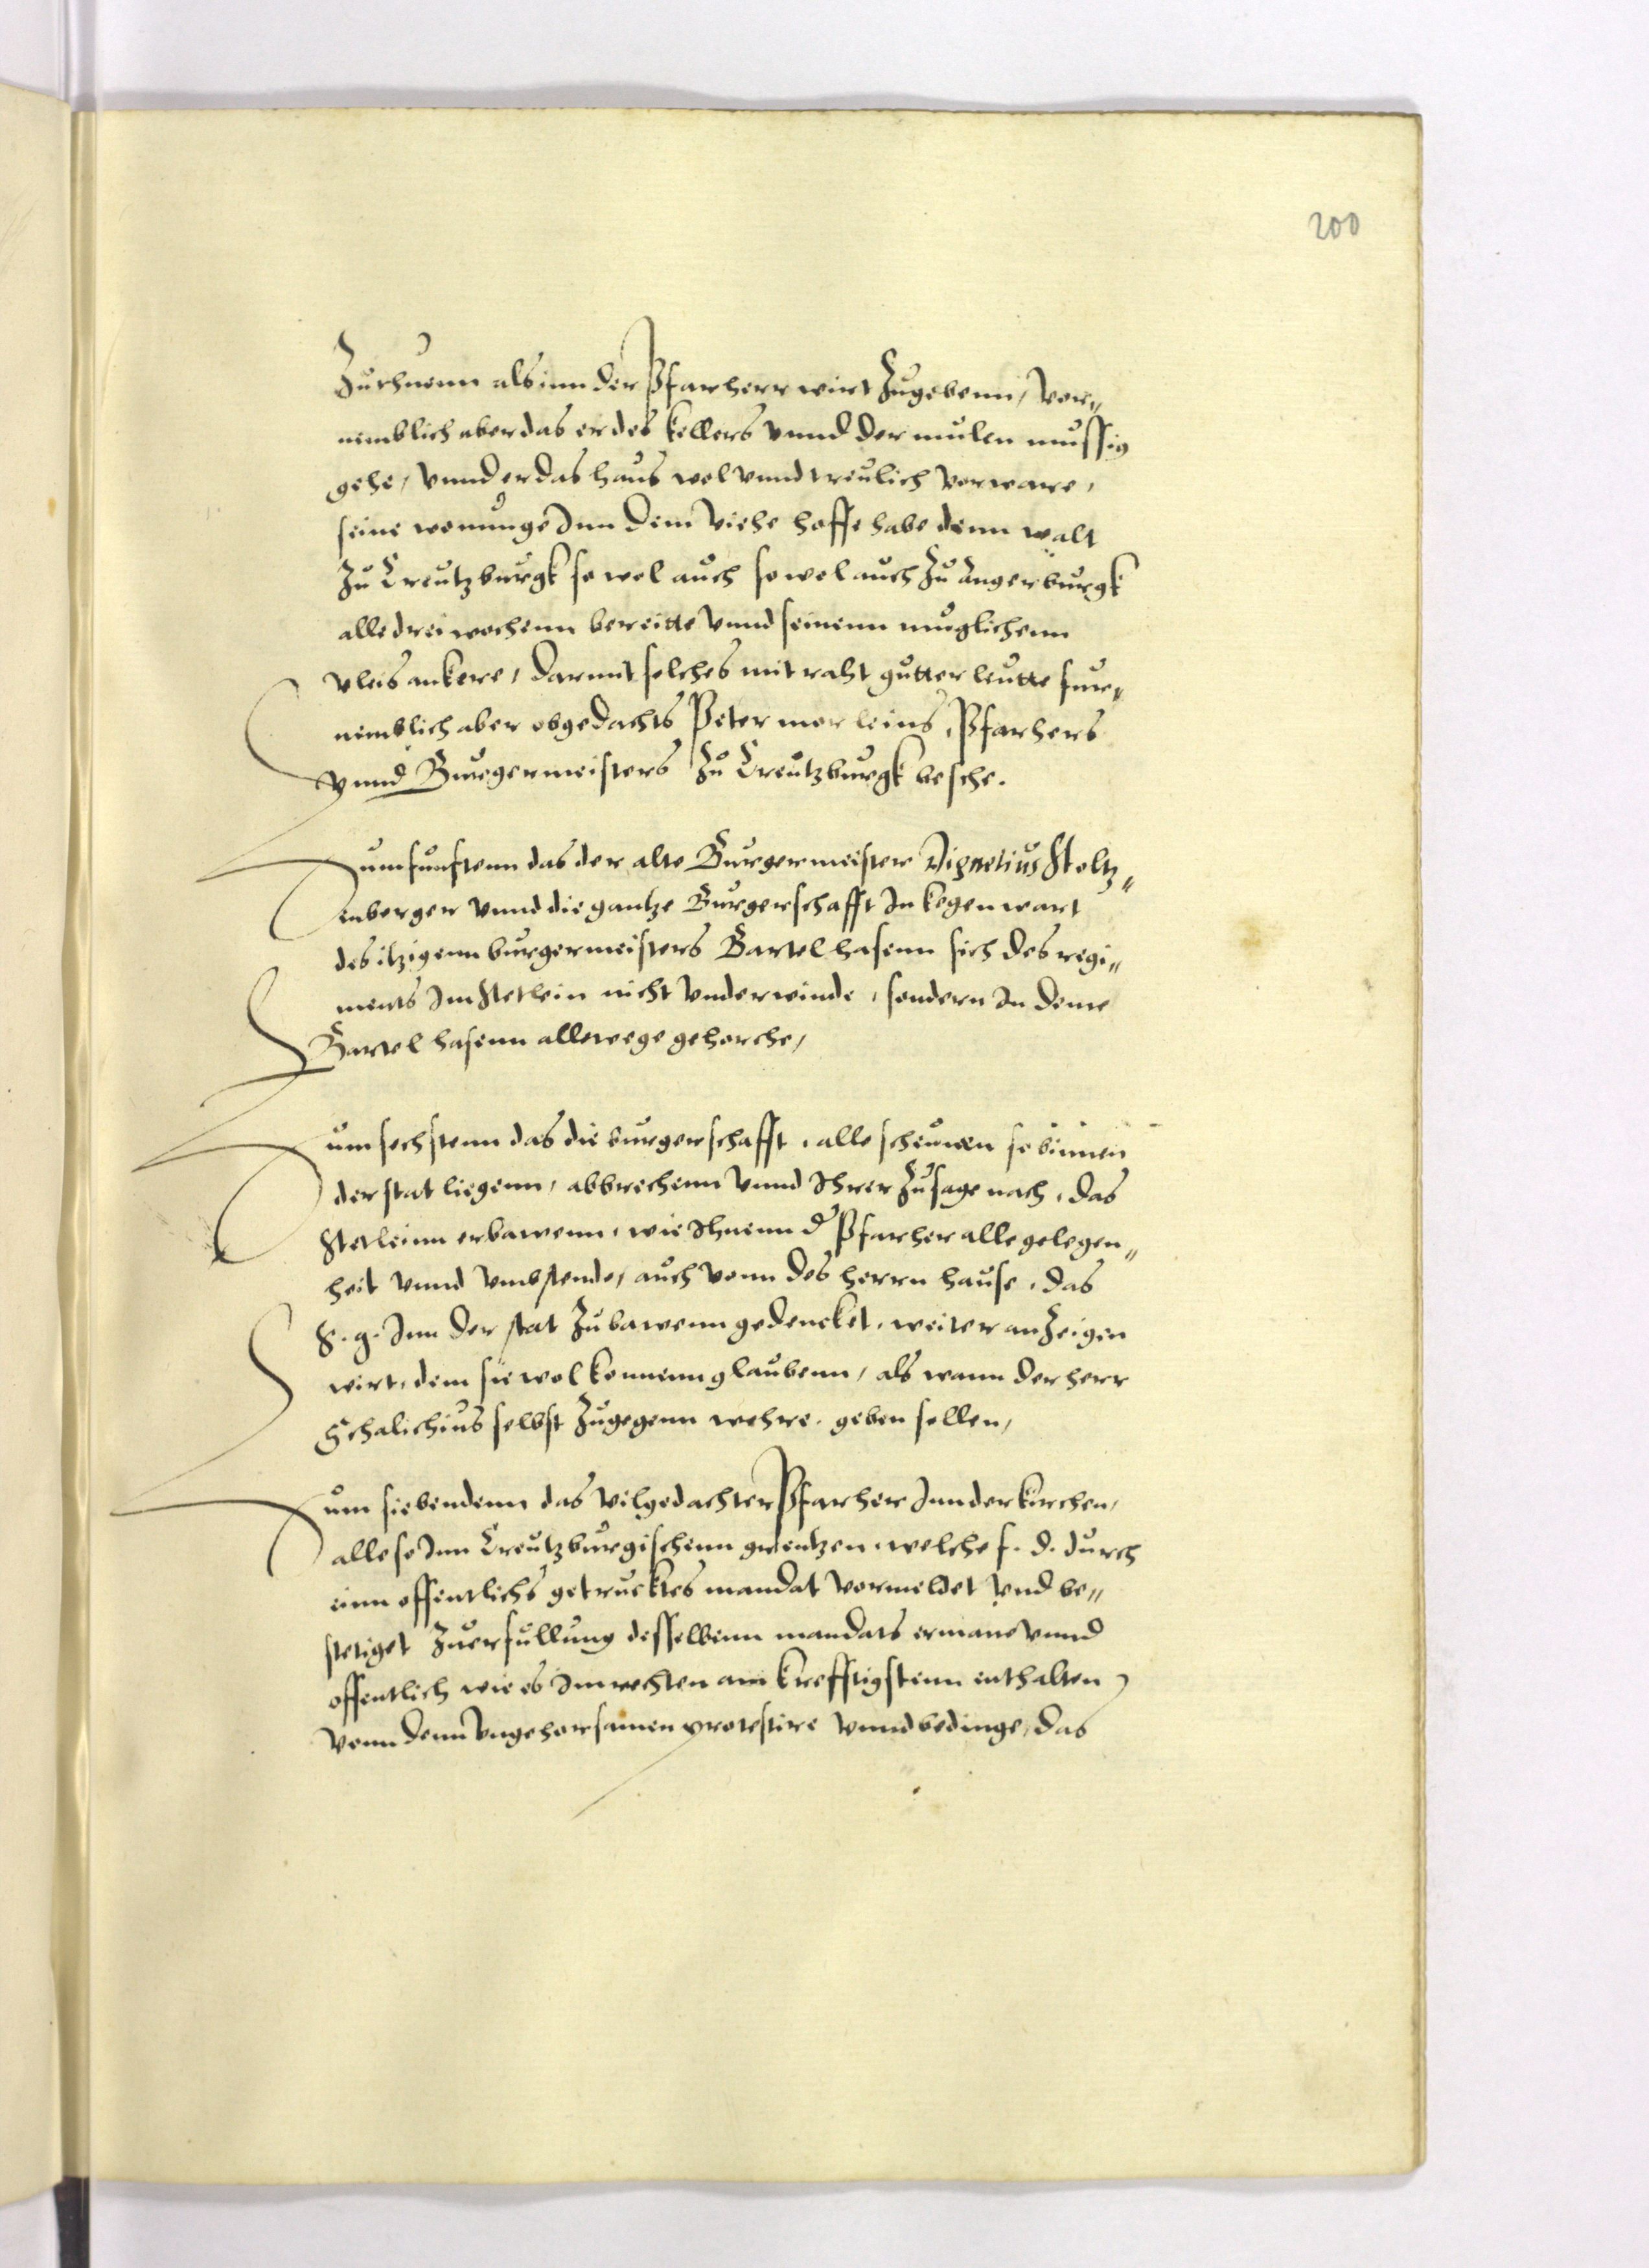 200
Zuthuenn als inn der Pfarherr wirt Zugebenn, vor„
nemblich aber das er des kellers vnnd der mulen mussig
gehe, vnnd er das haus wol vnnd treulich verware,
seine wonunge Inn dem viehe hoffe habe denn walt
Zu Creutzburgk so wol auch so wol auch Zu Angerburgk
alle drei wochenn bereitte vnnd seinenn muglichenn
vleis ankere, darmit solches mit raht gutter leutte fur„
nemblich aber obgedachts Peter morleins, Pfarhers
vnnd Burgermeisters Zu Creutzburgk beschehe.
Zum funftenn das der alte Burgermeister Stoltz„
enberger vnnd die gantze Burgerschafft In kegenwart
des itzigenn burgermeisters Bartel hasenn sich des regi„
ments Im stetlein nicht vnderwinde, sondern In deme
Bartel hasenn allewege gehorche,
Zum sechstenn das die burgerschafft, alle scheunen so binnen
der stat liegenn, abbrechenn vnnd Ihrer Zusage nach, das
stetleinn erbawenn, wie Ihnenn d Pfarher alle gelegen„
heit vnnd vmbstende, auch vonn des herrn hause, das
S. g. Inn der stat Zubawenn gedencket, weiter anZeigen
wirt, dem sie wol konnenn glaubenn, als wann der herr
Schalichius selbst Zugegenn wehre, geben sollen,
Zum siebendenn das vilgedachter Pfarher Inn der kirchen,
alle so Inn Creutzburgischenn grentzen, welche f. d. durch
einn offentlichs getrucktes mandat vormeldet vnd be„
stetiget Zuerfullung desselbenn mandats ermane vnnd
offentlich wie es Im rechten am krefftigstenn enthalten
vonn denn vngehorsamen protestire vnnd bedinge, das